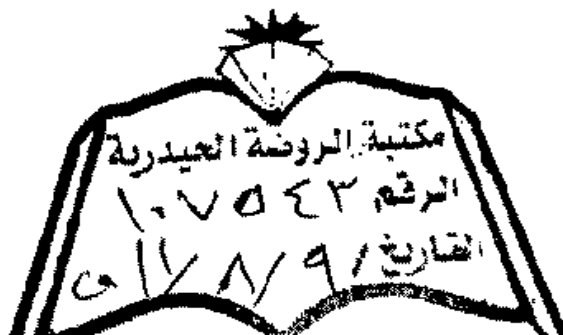 مكتبة الروضة الحيدرية
الرقم ١٠٧٥٤٣
التاريخ